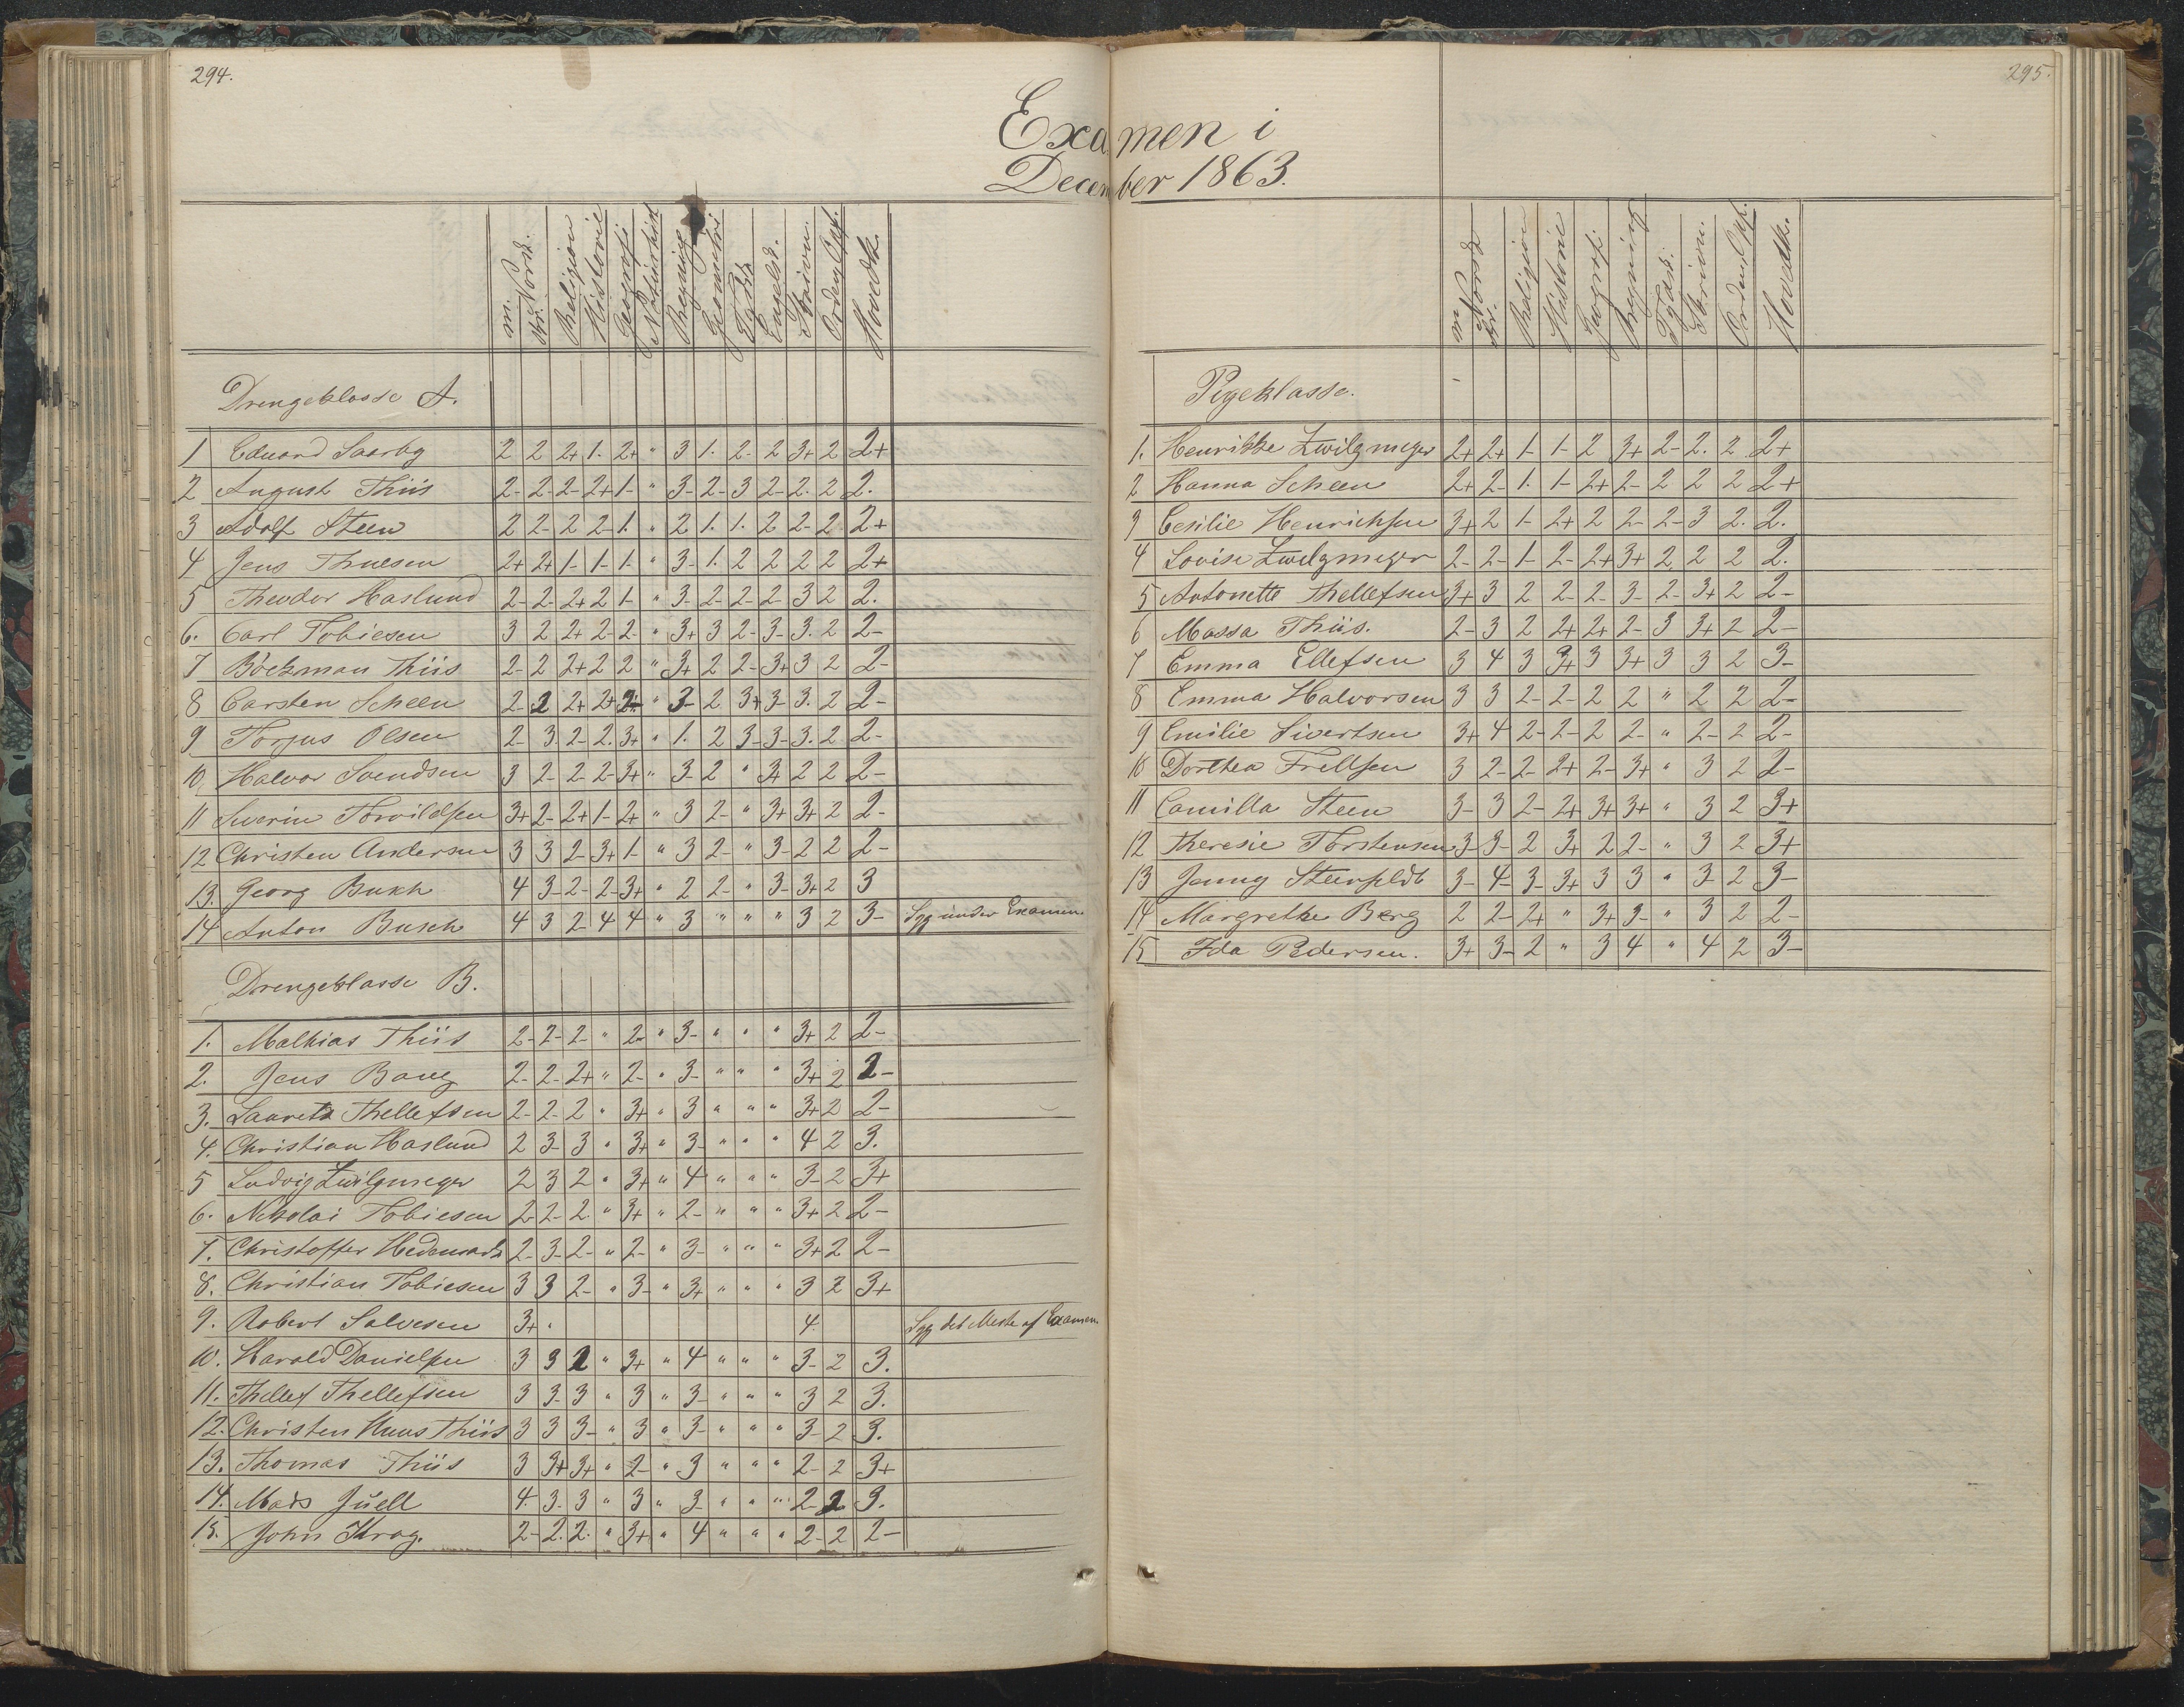 294.
295.
Examen i
December 1863.
m. Norsk. skr. Norsk. Religion Historie Geografi Naturhist Regning Geometri Tydsk Engelsk. Skrivn. Orden, Opf. Hovedk.
Drengeklasse A.
1 Eduard Saarby 2 2 2+ 1- 2+ " 3 1. 2- 2 3+ 2 2+
2 August Thiis 2- 2- 2- 2+ 1- " 3- 2- 3 2- 2. 2 2.
3 Adolf Steen 2 2- 2 2- 1. " 2 1. 1. 2 2- 2 2+
4 Jens Thuesen 2+ 2+ 1- 1- 1- " 3- 1. 2 2 2 2 2+
5 Theodor Haslund 2- 2- 2+ 2 1- " 3- 2- 2- 2- 3 2 2.
6. Carl Tobiesen 3 2 2+ 2- 2- " 3+ 3 2- 3- 3. 2 2-
7 Böckman Thiis 2- 2 2+ 2 2 " 3+ 2 2- 3+ 3 2 2-
8 Carsten Scheen 2- 2 2+ 2+ 2+ " 3- 2 3+ 3- 3. 2 2-
9 Torjus Olsen 2- 3 2- 2. 3+ " 1. 2 3- 3- 3. 2 2-
10, Halvor Svendsen 3 2- 2- 2- 3+ " 3- 2 " 3+ 2 2 2-
11 Severin Torvildsen 3+ 2- 2+ 1- 2+ " 3 2- " 3+ 3+ 2 2-
12 Christen Andersen 3 3 2- 3+ 1- " 3 2- " 3- 2 2 2-
13. Georg Bukh 4 3- 2- 2- 3+ " 2 2- " 3- 3+ 2 3
14 Anton Busch 4 3 2- 4 4 " 3 " " " 3 2 3- Syg under Examen.
Drengeklasse B.
1. Mathias Thiis 2- 2- 2- " 2- " 3- " " " 3+ 2 2-
2. Jens Bang 2- 2- 2+ " 2- " 3- " " " 3+ 2 2-
3. Laurets Thellefsen 2- 2- 2 " 3+ " 3 " " " 3+ 2 2-
4. Christian Haslund 2 3- 3 " 3+ " 3- " " " 4 2 3.
5 Ludvig Zwilgmeyer 2 3 2 " 3+ " 4 " " " 3- 2 3+
6. Nikolai Tobiesen 2- 2- 2. " 3+ " 2- " " " 3+ 2 2-
7. Christoffer 2- 3- 2- " 2- " 3- " " " 3+ 2 2-
8. Christian Tobiesen 3 3 2- " 3- " 3+ " " " 3 2 3+
9. Robert Salvesen 3+ " 4. Syg det Meste af Examen.
10. Harald Danielsen 3 3 2 " 3+ " 4 " " " 3- 2 3.
11. Thellef Thellefsen 3 3- 3 " 3 " 3- " " " 3 2 3.
12. Christen Huus Thiis 3 3 3- " 3 " 3- " " " 3- 2 3.
13. Thomas Thiis 3 3+ 3+ " 2- " 3 " " " 2- 2 3+
14. Mads Juell 4. 3- 3 " 3 " 3- " " " 2- 2 3.
15. John Krag. 2- 2. 2. " 3+ " 4 " " " 2- 2 2-
m Norsk skr. Religion Historie Geografi Regning Tydsk. Skrivn. Orden, Opf. Hovedk.
Pigeklasse.
1. Henrikke Zwilgmeyer 2+ 2+ 1- 1- 2 3+ 2- 2. 2 2+
2 Hanna Scheen 2+ 2- 1. 1- 2+ 2- 2 2 2 2+
3 Cesilie Henrichsen 3+ 2 1- 2+ 2 2- 2- 3 2. 2.
4 Lovise Zwilgmeyer 2- 2- 1- 2- 2+ 3+ 2 2 2 2.
5 Antonette Thellefsen 3+ 3 2 2- 2- 3- 2- 3+ 2 2-
6 Massa Thiis. 2- 3 2 2+ 2+ 2- 3 3+ 2 2-
7 Emma Ellefsen 3 4 3 3+ 3 3+ 3 3 2 3-
8 Emma Halvorsen 3 3 2- 2- 2 2 " 2 2 2-
9 Emilie Sivertsen 3+ 4 2- 2- 2 2- " 2- 2 2-
10 Dorthea Frellsen 3 2- 2- 2+ 2- 3+ " 3 2 2-
11 Camilla Steen 3- 3 2- 2+ 3+ 3+ " 3 2 3+
12 Theresie Torstensen 3- 3- 2 3+ 2 2- " 3 2 3+
13 Jenny Steenfeldt 3- 4- 3- 3+ 3 3 " 3- 2 3-
14 Margrethe Berg 2 2- 2+ " 3+ 3- " 3 2 2-
15 Ida Pedersen. 3+ 3- 2 " 3 4 " 4 2 3-